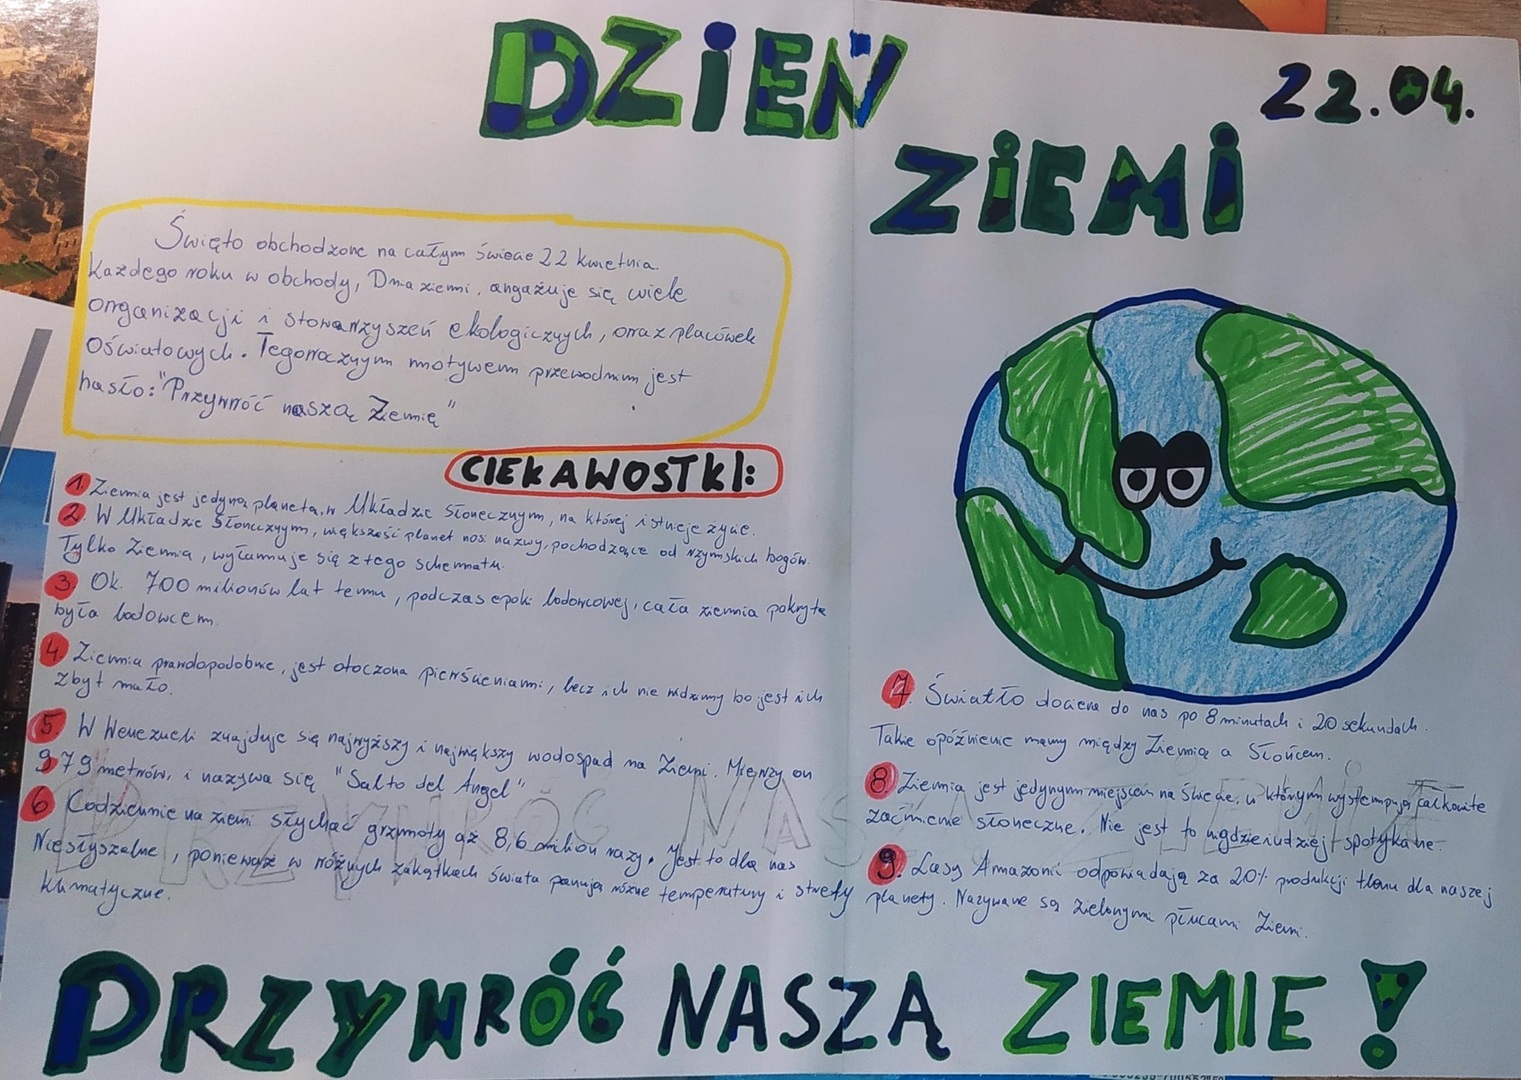 DZIEŃ
22.04.
ZIEMI
Święto obchodzone na całym świecie 22 kwietnia.
Każdego roku w obchody, Dnia ziemi, angażuje się wiele
organizacji i stowarzyszeń ekologicznych, oraz placówek
Oświatowych. Tegorocznym motywem przewodnim jest
hasło: "Przywróć naszą Ziemię"
CIEKAWOSTKI:
1. Ziemia jest jedyną planetą, w Układzie Słonecznym, na której istnieje życie.
2. W Układzie Słonecznym, większość planet nosi nazwy, pochodzące od rzymskich bogów.
Tylko Ziemia, wyłamuje się z tego schematu.
3. Ok. 700 milionów lat temu, podczas epoki lodowcowej, cała ziemia pokryta
była lodowcem.
4. Ziemia prawdopodobnie, jest otoczona pierścieniami, lecz ich nie widzimy bo jest ich
zbyt mało.
5. W Wenezueli znajduje się najwyższy i największy wodospad na Ziemi. Mierzy on
979 metrów, i nazywa się "Salto del Angel"
6 Codziennie na ziemi słychać grzmoty aż 8,6 milion razy. Jest to dla nas
Niesłyszalne, ponieważ w różnych zakątkach świata panują różne temperatury i strefy
klimatyczne.
7. Światło dociera do nas po 8 minutach i 20 sekundach.
Takie opóźnienie mamy między Ziemią a Słońcem.
8. Ziemia jest jedynym miejscem na świecie, w którym występują całkowite
zaćmienie słoneczne. Nie jest to nigdzieindziej spotykane.
9. Lasy Amazonii odpowiadają za 20% produkcji tlenu dla naszej
planety. Nazywane są zielonymi płucami Ziemi.
PRZYWRÓĆ NASZĄ ZIEMIE!